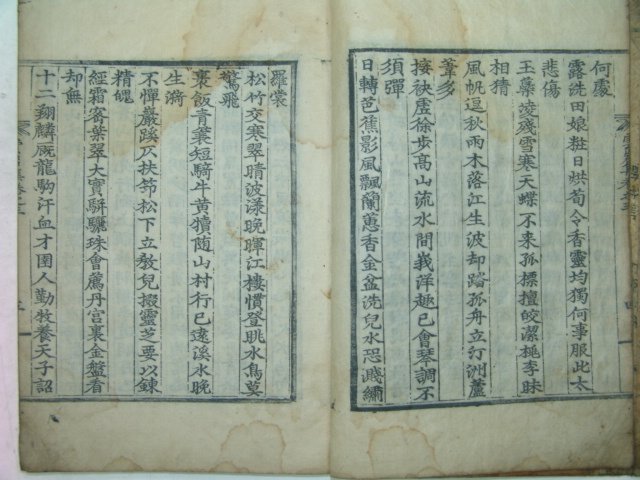 何處
露洗田娘粧日烘荀令香靈均獨何事服此太
悲傷
玉蘂凌殘雪寒天蝶不来孤標擅皎潔桃李昧
相猜
風帆逗秋雨木落江生波却踏孤舟立汀洲蘆
葦多
接袂虗徐步高山流水間峩洋趣已會琴調不
須彈
日轉芭蕉影風飄蘭蕙香金盆洗兒水恐濺繡
羅裳
松竹交寒翠晴波漾晚暉江樓慣登眺水鳥莫
驚飛
裹飯青蒻短騎牛黄犢随山村行已遠溪水晚
生漪
不憚巖蹊仄扶笻松下立敎兒掇靈芝要以鍊
精魄
經霜密葉翠大實駢驪珠會薦丹宫裏金盤看
却無
十二翔麟厩龍駒汗血才圉人勤牧養天子詔